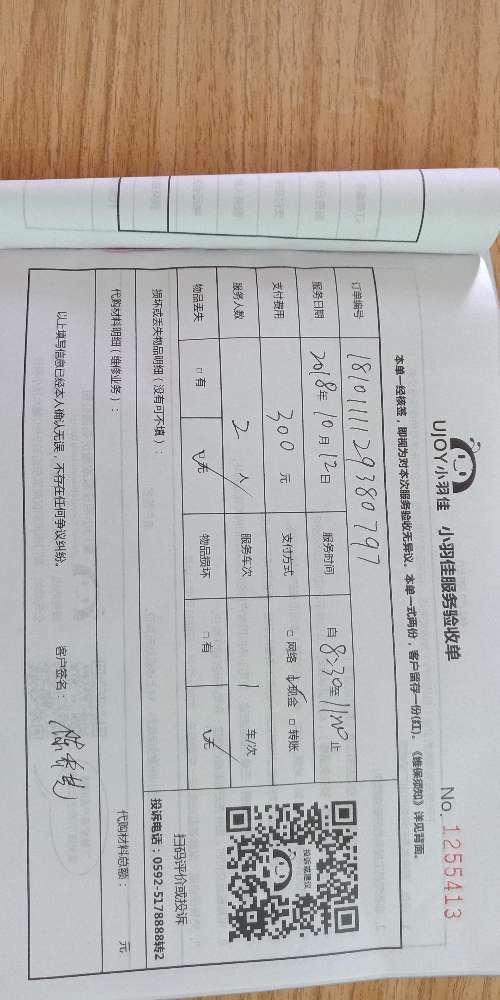 UJOY小羽佳 小羽佳服务验收单 No. 1255413
本单一经核签，即视为对本次服务验收无异议。本单一式两份，客户留存一份(红)。《维保须知》详见背面。
订单编号 181011112938079
服务日期 2018年10月12日 服务时间 自8:30至11:20止
支付费用 300元 支付方式 □网络 ☑现金 □转账
服务人数 2人 服务车次 1车/次
物品丢失 □有 ☑无 物品损坏 □有 ☑无
投诉或建议
扫码评价或投诉
投诉电话：0592-5178888转2
损坏或丢失物品明细（没有可不填）：
代购材料明细（维修业务）： 代购材料总额： 元
以上填写信息已经本人确认无误，不存在任何争议纠纷。 客户签名：